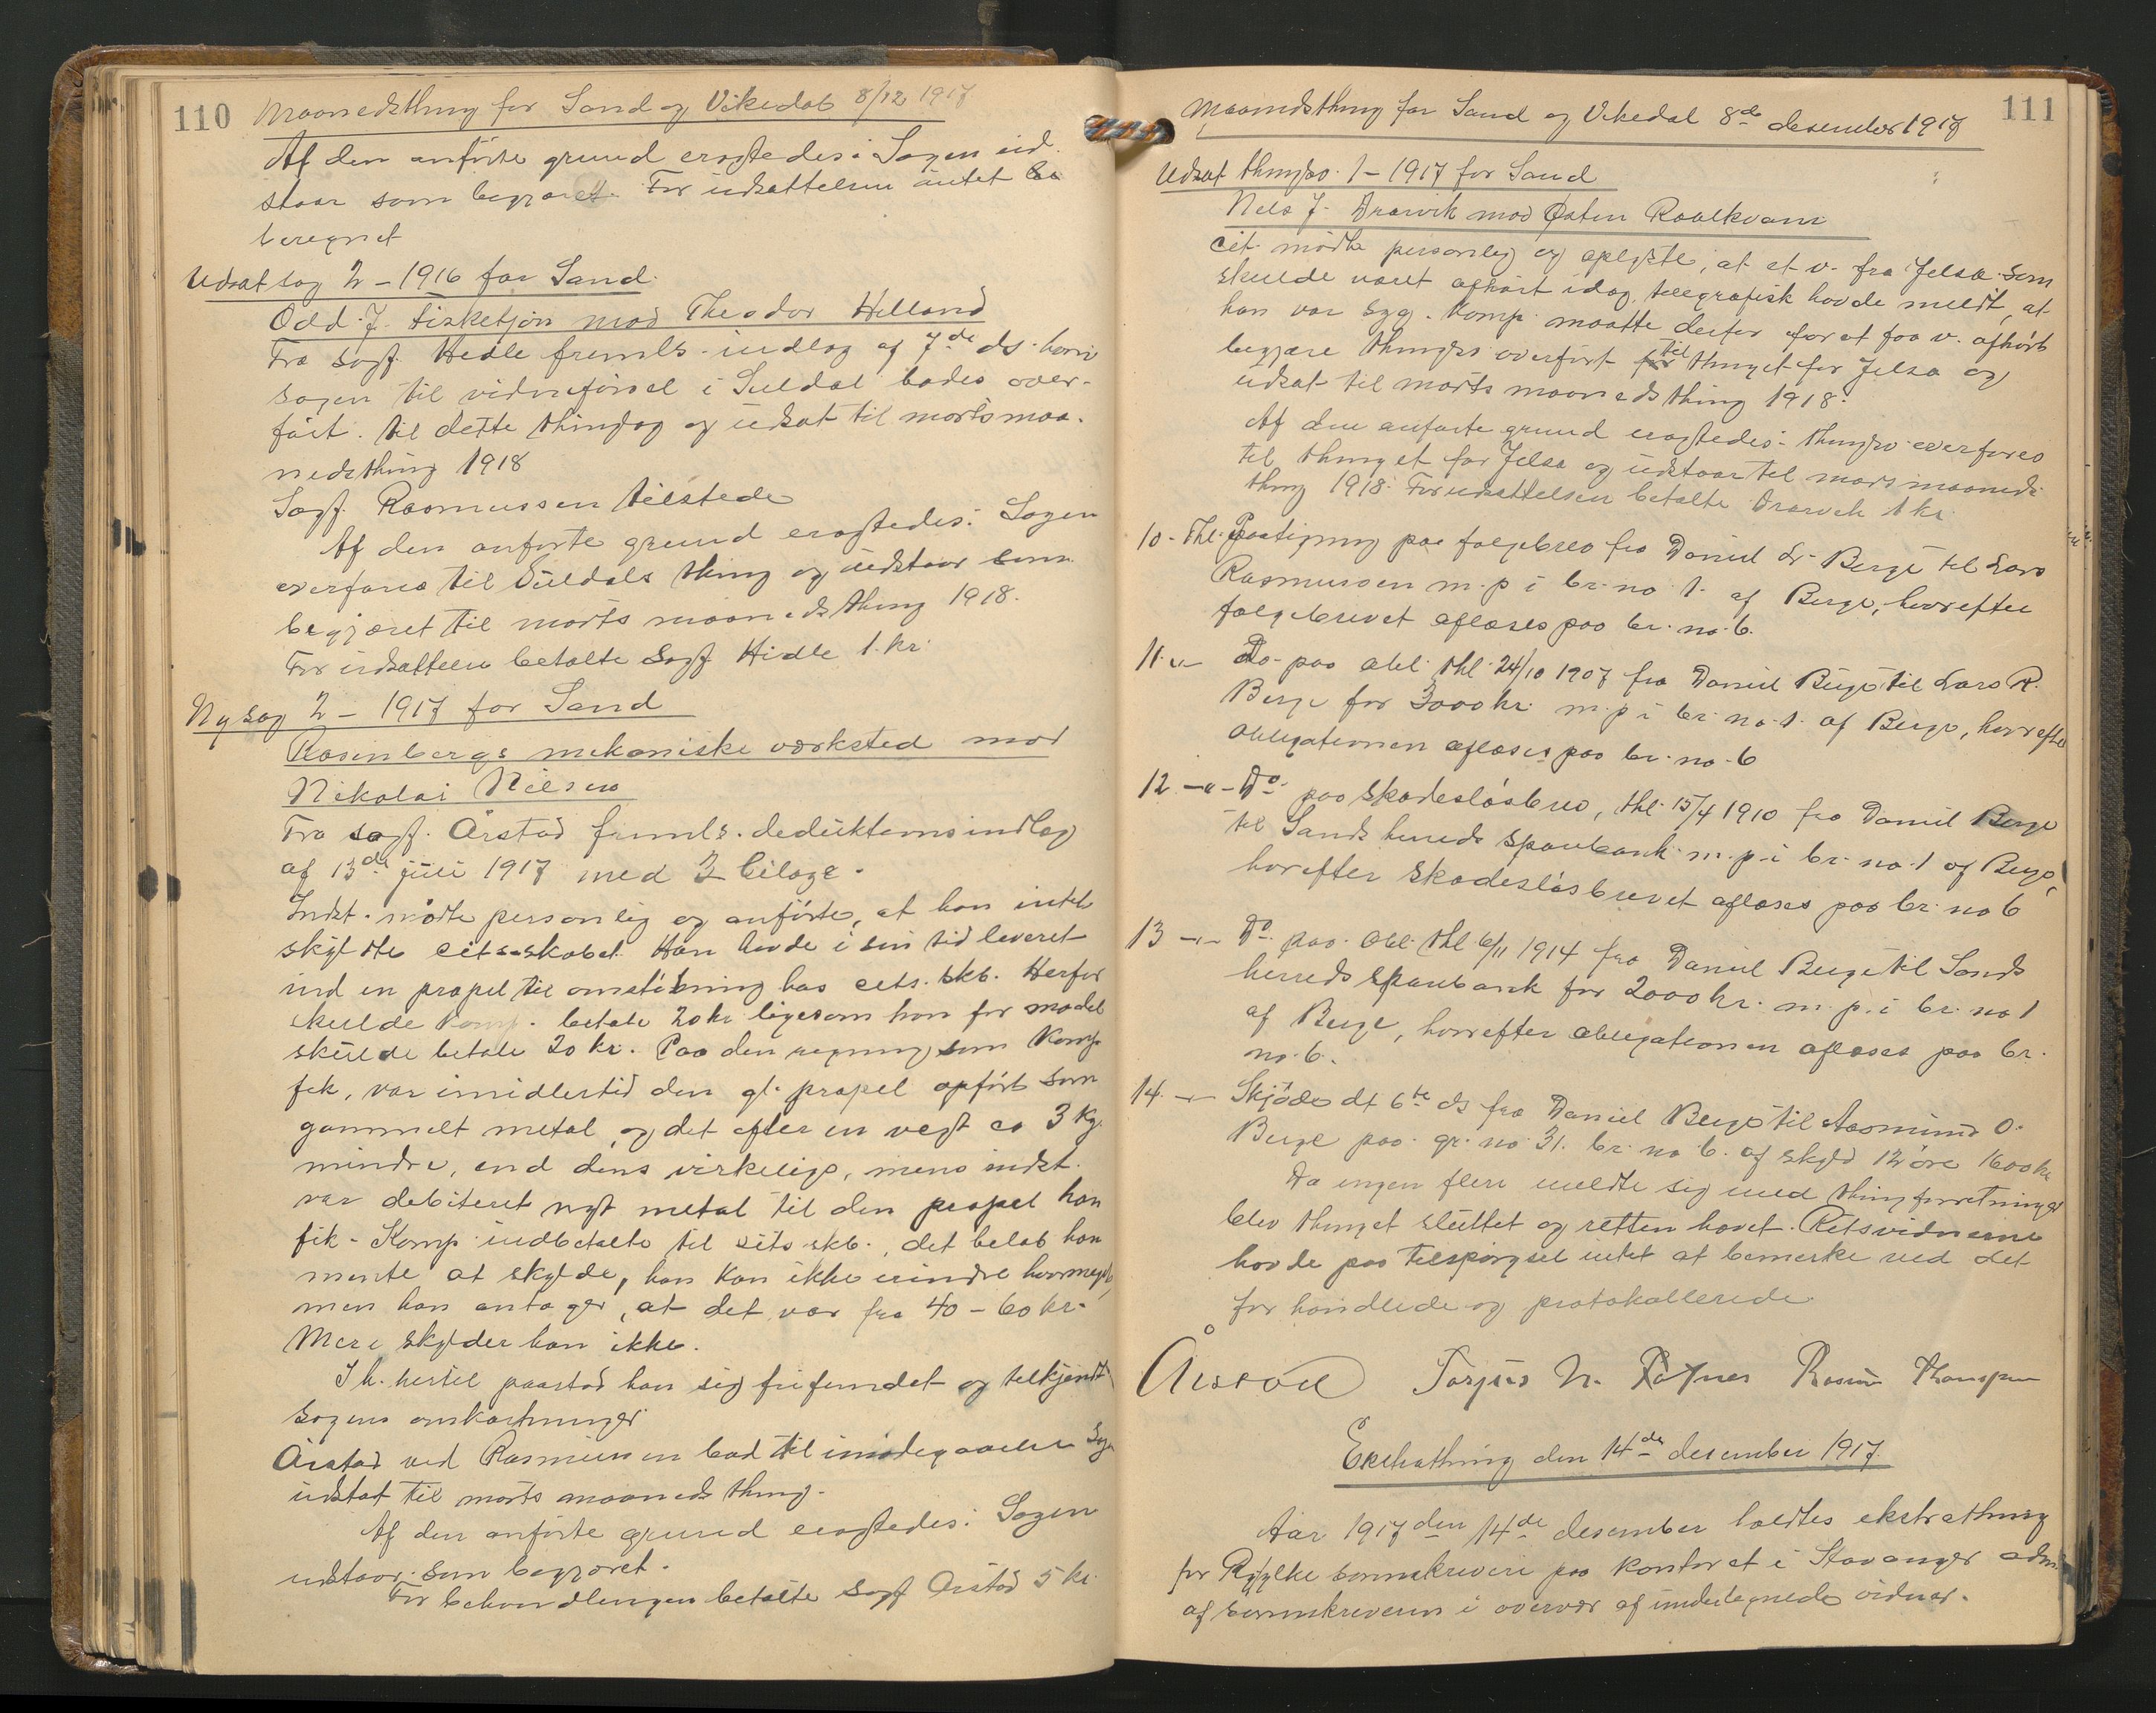 110 Maanedsthing for Sand og Vikedal 8/12 1917
Af den anførte grund eragtedes: Sagen ud-
staar som begjæret. For udsættelsen intet
beregnet
Udsat sag 2 – 1916 for Sand.
Odd J. Fisketjøn mod Theodor Helland
Fra sagf. Hidle fremls. indlæg af 7de ds. hvori
sagen til vidneførsel i Suldal bades over-
ført til dette thinglag og udsat til marts maa-
nedsthing 1918
Sagf. Rasmussen tilstede
Af den anførte grund eragtedes: Sagen
overføres til Suldals thing og udstaar som
begjæret til marts maanedsthing 1918.
For udsættelsen betalte Sagf Hidle 1 kr.
Ny sag 2 – 1917 for Sand
Rosenbergs mekaniske værksted mod
Nikolai Nilsen
Fra sagf. Årstad fremls. deduktionsindlæg
af 13de juli 1917 med 3 bilage.
Indst. mødte personlig og anførte, at han intet
skyldte cits-skabet. Han havde i sin tid leveret
ind en propel til omstøbning hos cits. skb. Herfor
skulde komp. betale 20 kr ligesom han for model
skulde betale 20 kr. Paa den regning, som komp.
fik, var imidlertid den gl. propel opført som
gammelt metal, og det efter en vegt ca 3 kg.
mindre, end dens virkelige, mens indst.
var debiteret nyt metal til den propel han
fik. Komp. indbetalte til cits skb., det beløb han
mente at skylde, han kan ikke erindre hvormeget,
men han antager, at det var fra 40 – 60 kr.
Mere skylder han ikke.
I h. hertil paastod han sig frifundet og tilkjendt
sagens omkostninger
Årstad ved Rasmussen bad til imødegaaelse Sagen
udsat til marts maanedsthing.
Af den anførte grund eragtedes: Sagen
udstaar som begjæret.
For behandlingen betalte sagf Årstad 5 kr.
Maanedsthing for Sand og Vikedal 8de desember 1917 111
Udsat thingsv. 1 – 1917 for Sand
Nels J. Drarvik mod Østen Raalkvam
Cit. mødte personlig og oplyste, at et v. fra Jelsa som
skulde været afhørt idag, telegrafisk havde meldt, at
han var syg. Komp. maatte derfor for at faa v. afhørt
begjære thingsv. overført til thinget for Jelsa og
udsat til marts maanedsthing 1918.
Af den anførte grund eragtedes: thingsv. overføres
til thinget for Jelsa og udstaar til mars maaneds-
thing 1918. For udsættelsen betalte Drarvik 1 kr.
10 - Thl. Paategning paa følgebrev fra Daniel Lr. Berge til Lars
Rasmussen m.p i br. no 1. af Berge, hvorefter
følgebrevet aflæses paa br. no. 6.
11 -"- do. paa obl. thl. 24/10 1907 fra Daniel Berge til Lars R.
Berge for 3000 kr. m.p i br. no 1. af Berge, hvorefter
obligationen aflæses paa br. no. 6
12 -"- Do. paa skadesløsbrev, thl. 15/4 1910 fra Daniel Berge
til Sands herreds sparebank m.p. i br. no 1 af Berge,
hvorefter skadesløsbrevet aflæses paa br. no 6
13 -"- Do. paa obl. thl. 6/11 1914 fra Daniel Berge til Sands
herreds sparebank for 2000 kr. m.p. i br. no 1
af Berge, hvorefter obligationen aflæses paa br.
no. 6.
14 -"- Skjøde dt 6te ds fra Daniel Berge til Aasmund O.
Berge paa gr. no 31. br. no 6. af skyld 12 øre 1600 kr
Da ingen flere meldte sig med thingforretninger
blev thinget sluttet og retten hævet. Retsvidnerne
havde paa tilspørgsel intet at bemerke ved det
forhandlede og protokollerede.
Årstad Torjus N. Rasmus Thomsen
Ekstrathing den 14de desember 1917
Aar 1917 den 14de desember holdtes ekstrathing
for Ryfylke sorenskriveri paa kontoret i Stavanger adm.
af sorenskriveren i overvær af undertegnede vidner.